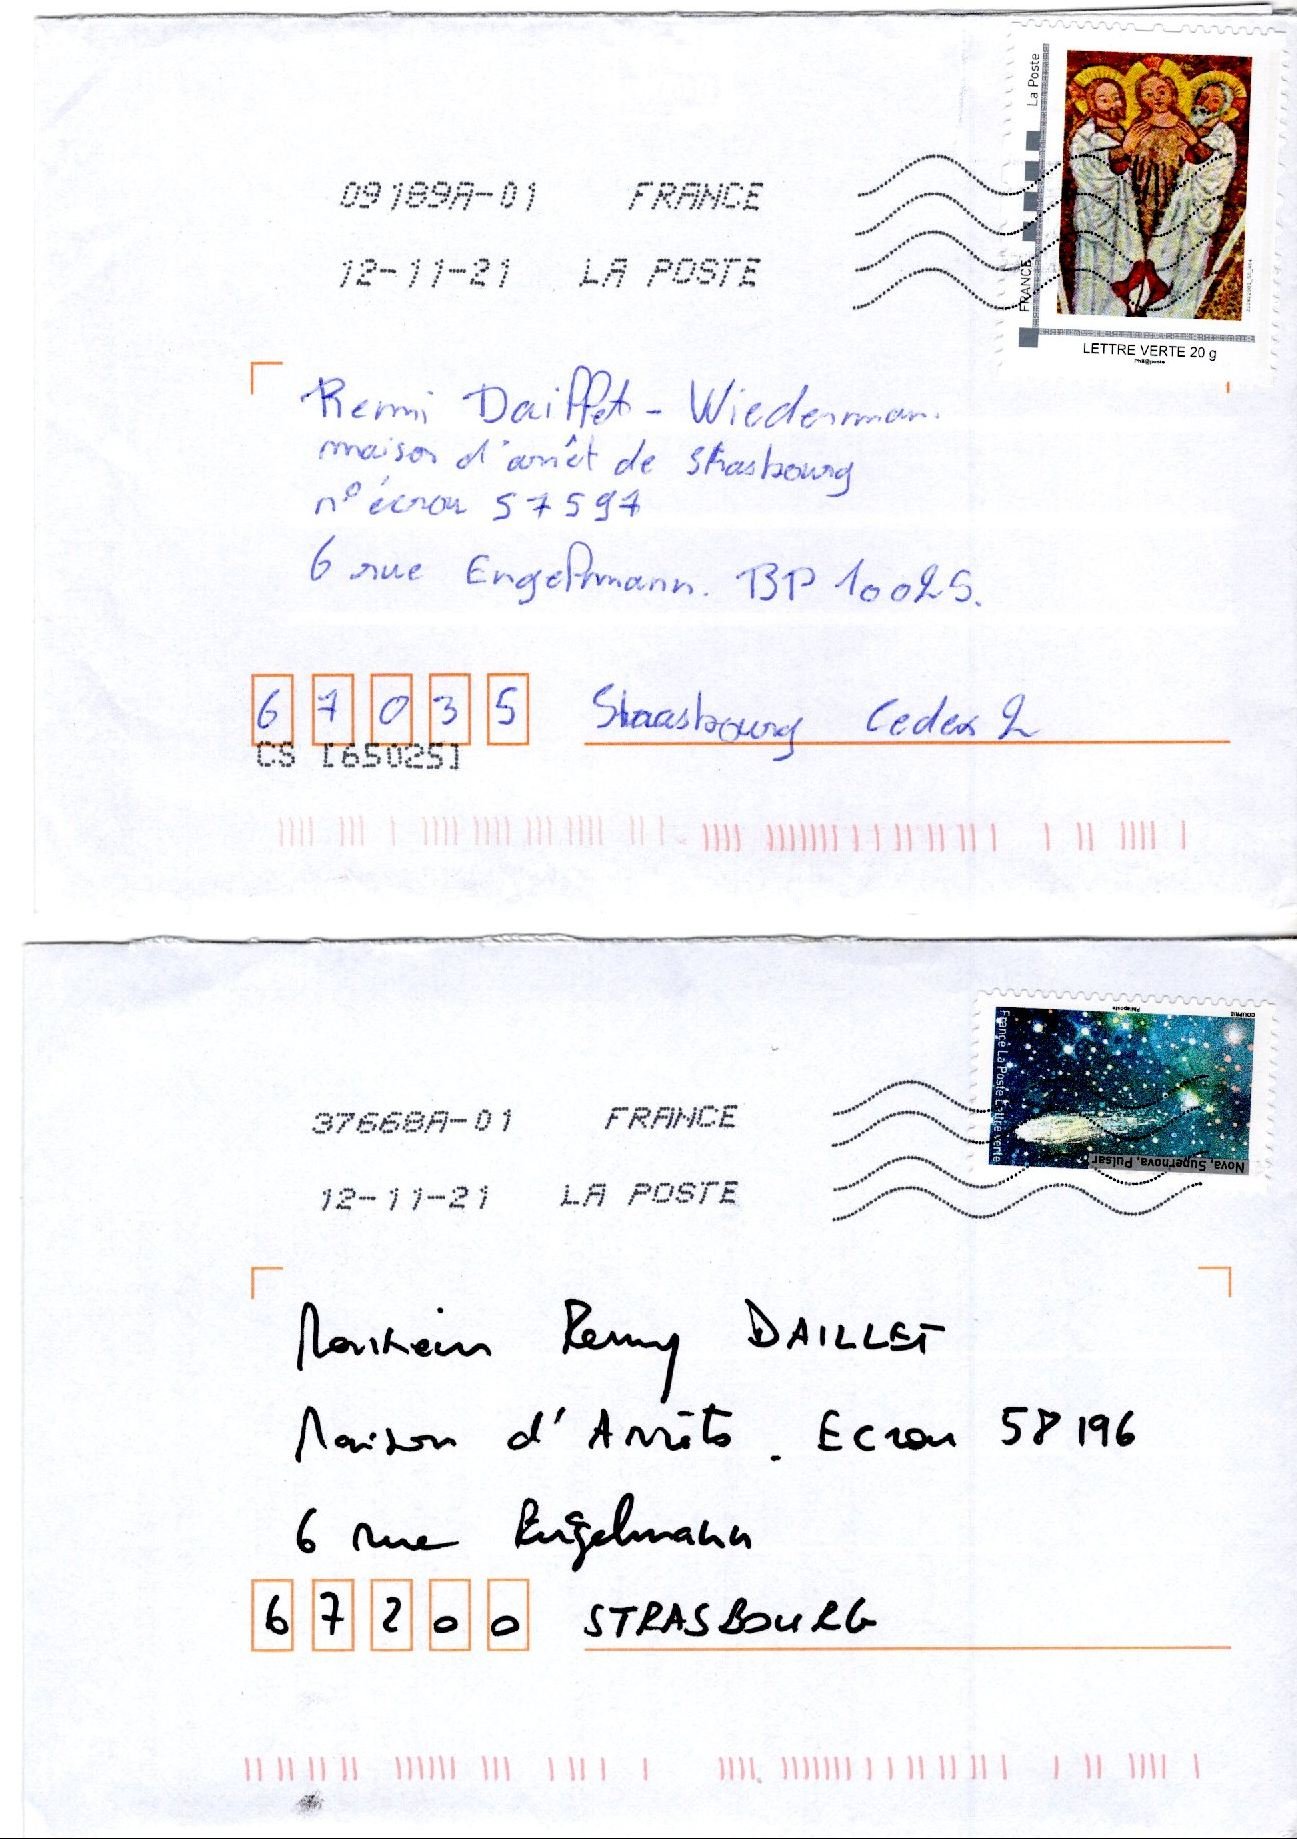 La Poste
FRANCE
LETTRE VERTE 20 g
Phil@poste
09189A-01 FRANCE
12-11-21 LA POSTE
Remi Daiffet - Wiederman.
maison d'arrêt de Strasbourg
n° écrou 57597
6 rue Engelmann. BP 10025.
67035 Strasbourg Cedex 2
CS [65025]
France La Poste Lettre verte
Philaposte
Nova, Supernova, Pulsar
37668A-01 FRANCE
12-11-21 LA POSTE
Monsieur Remy DAILLET
Maison d'Arrêts. Ecrou 58196
6 rue Engelmann
67200 STRASBOURG